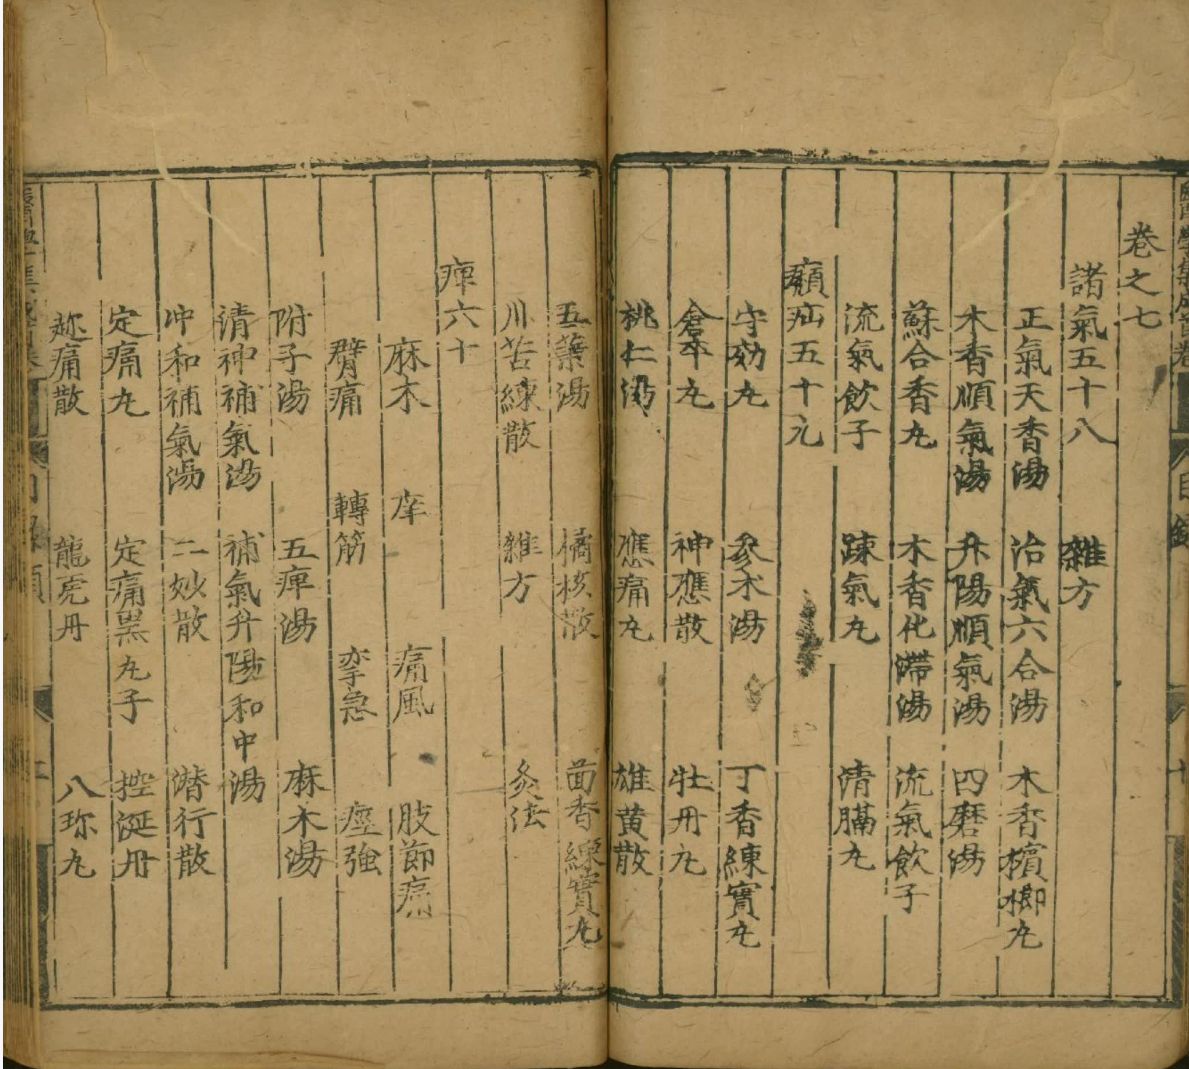 卷之七
諸氣五十八 雜方
正氣天香湯 治氣六合湯 木香檳榔丸
木香順氣湯 升陽順氣湯 四磨湯
蘇合香丸 木香化滯湯 流氣飲子
流氣飲子 踈氣丸 清膈丸
㿗疝五十九
守効丸 參术湯 丁香練實丸
倉卒丸 神應散 牡丹丸
桃仁湯 應痛丸 雄黄散
五藥湯 橘核散 茴香練實丸
川苦練散 雜方 灸法
痺六十
麻木 痒 痛風 肢節痛
臂痛 轉筋 孿急 痙強
附子湯 五痺湯 麻木湯
清神補氣湯 補氣升陽和中湯
冲和補氣湯 二妙散 潛行散
定痛丸 定痛黑丸子 控涎丹
趂痛散 龍虎丹 八珎丸